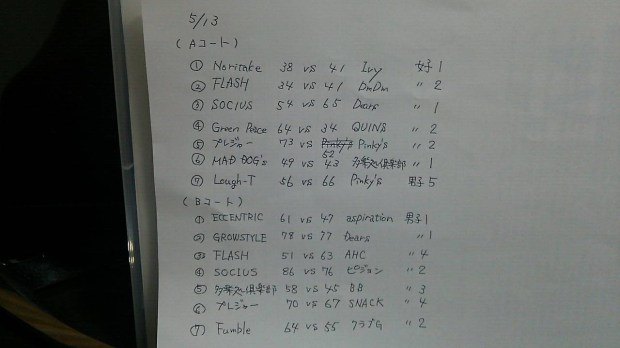 5/13
(Aコート)
① Noritake 38 vs 41 Ivy 女子1
② FLASH 34 vs 41 DmDm 〃 2
③ SOCIUS 54 vs 65 Dears 〃 1
④ Green Peace 64 vs 34 QUINS 〃 2
⑤ プレジャー 73 vs 52 Pinky's 〃 2
⑥ MAD DOG's 49 vs 43 倶楽部 〃 1
⑦ Lough-T 56 vs 66 Pinky's 男子5
(Bコート)
① ECCENTRIC 61 vs 47 aspiration 男子1
② GROWSTYLE 78 vs 77 Dears 〃 1
③ FLASH 51 vs 63 AHC 〃 4
④ SOCIUS 86 vs 76 ピジョン 〃 2
⑤ 倶楽部 58 vs 45 BB 〃 3
⑥ プレジャー 70 vs 67 SNACK 〃 4
⑦ Fumble 64 vs 55 クラブG 〃 2